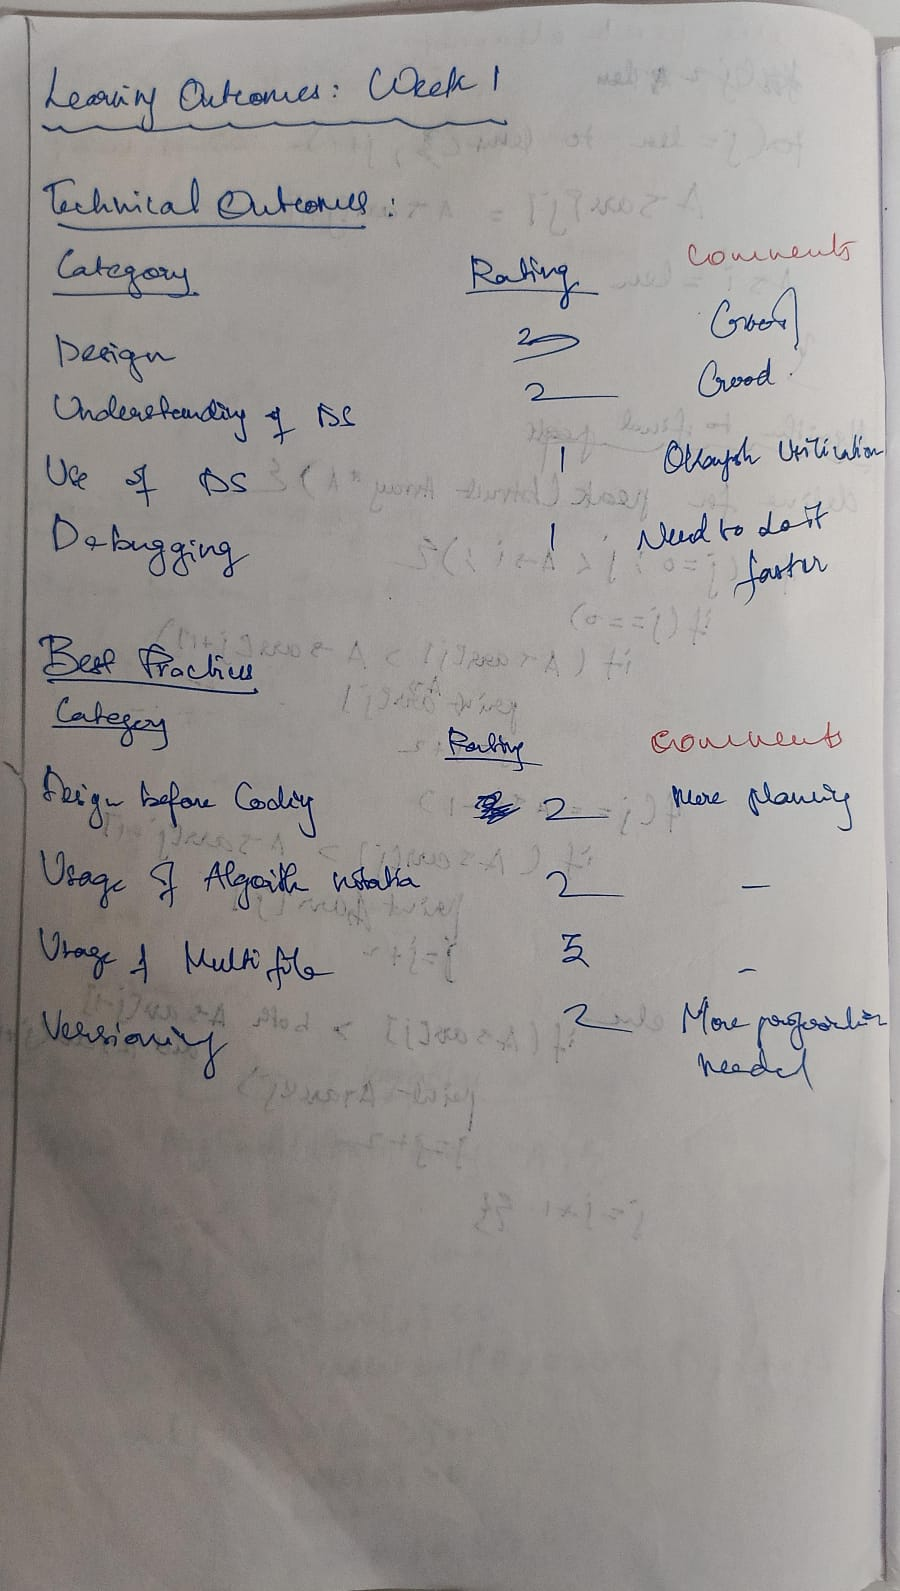 Learning Outcomes: Week 1
Technical Outcomes:
Category Rating Comments
Design Good
Understanding of DS 2 Good
Use of DS 1 Okayish Utilization
Debugging 1 Need to do it
faster
Best Practices
Category Rating Comments
Design before Coding 2 More planning
Usage of Algorith notatia 2 -
Usage of Multi file -
Versioning 2 More
needed